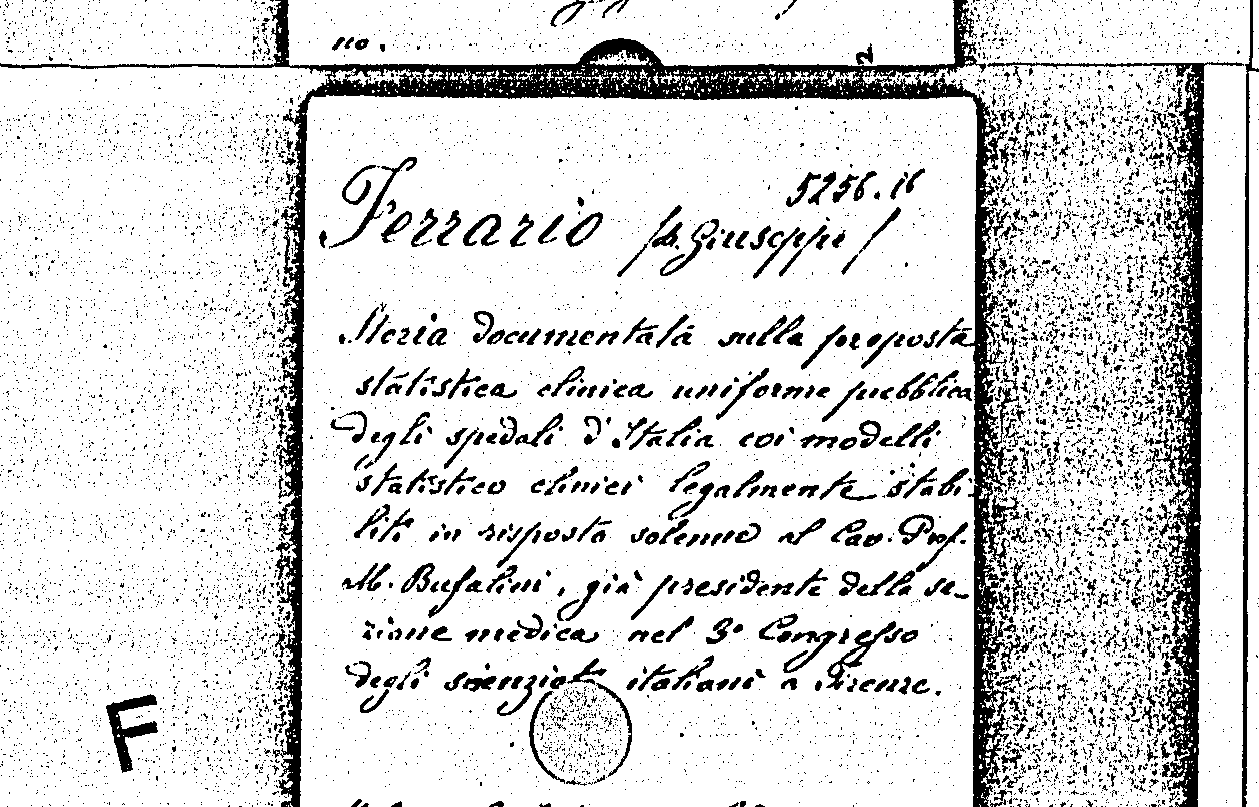 no.
5256.16
Ferrario /D. Giuseppe/
Storia documentata sulla proposta
statistica clinica uniforme pubblica
degli spedali d'Italia coi modelli
statistico clinici legalmente stabi-
liti in risposta solenne al Cav. Prof.
M. Bufalini, già presidente della se-
zione medica nel 3° Congresso
degli scienziati italiani a Firenze.
F